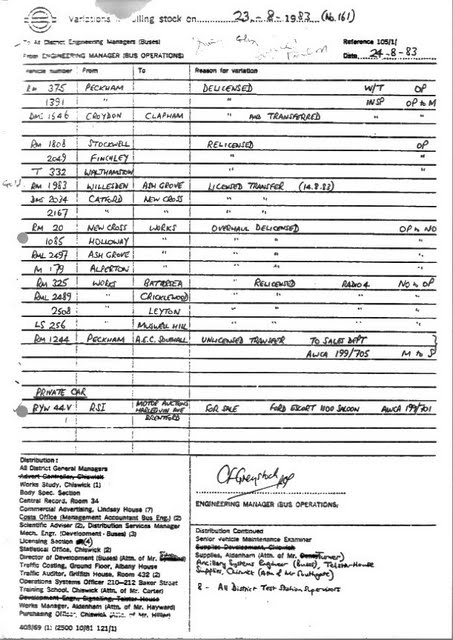 Variations in rolling stock on 23 - 8 - 1983 (No. 161)
To All District Engineering Managers (Buses)
Reference 105/1/
From ENGINEERING MANAGER (BUS OPERATIONS)
Date 24-8-83
Vehicle number From To Reason for variation
RM 375 PECKHAM DELICENSED W/T OP
1391 " " INSP OP to M
DMS 1546 CROYDON CLAPHAM " AND TRANSFERRED " "
RM 1808 STOCKWELL RELICENSED OP
2049 FINCHLEY " "
T 332 WALTHAMSTOW "
Gold RM 1983 WILLESDEN ASH GROVE LICENSED TRANSFER (14.8.83)
DMS 2034 CATFORD NEW CROSS " "
2167 " " " "
RM 20 NEW CROSS WORKS OVERHAUL DELICENSED OP to NO
1085 HOLLOWAY " " " "
RML 2497 ASH GROVE " " " "
M 179 ALPERTON " " " "
RM 325 WORKS BATTERSEA " RELICENSED RADIO 4 NO to OP
RML 2489 " CRICKLEWOOD " " " "
2508 " LEYTON " " " "
LS 256 " MUSWELL HILL " " "
RM 1244 PECKHAM A.E.C. SOUTHALL UNLICENSED TRANSFER TO SALES DEPT }
AWCA 199/705 M to S
PRIVATE CAR
BYW 44V RSI MOTOR AUCTIONS FOR SALE FORD ESCORT 1100 SALOON AWCA 199/701
HARLEQUIN AVE
BRENTFORD
Distribution:
All District General Managers
Advert Controller, Chiswick
Works Study, Chiswick (1)
Body Spec. Section
Central Record, Room 34
Commercial Advertising, Lindsey House (7)
Costs Office (Management Accountant Bus Eng.) (2)
Scientific Adviser (2), Distribution Services Manager
Mech. Engr. (Development - Buses) (3)
Licensing Section (4)
Statistical Office, Chiswick (2)
Director of Development (Buses) (Attn. of Mr.
Traffic Costing, Ground Floor, Albany House
Traffic Auditor, Griffith House, Room 432 (2)
Operations Systems Officer 210-212 Baker Street
Training School, Chiswick (Attn. of Mr. Carter)
Development Engr. Signalling, Telstar House
Works Manager, Aldenham (Attn. of Mr. Hayward)
Purchasing Officer, Chiswick (Attn. of Mr. Hillam)
405/69 (1) (2500 10/81 121/1)
ENGINEERING MANAGER (BUS OPERATIONS)
Distribution Continued
Senior Vehicle Maintenance Examiner
Supplies Development, Chiswick
Supplies, Aldenham (Attn. of Mr.
Ancillary Systems Engineer (Buses), Telstar House
Supplies, Chiswick (Attn of Mr Southgate)
2 - All District Test Station Supervisors